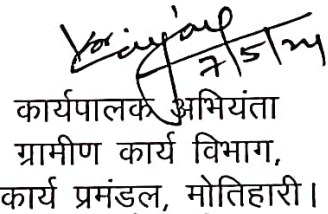 7/5/24
कार्यपालक अभियंता
ग्रामीण कार्य विभाग,
कार्य प्रमंडल, मोतिहारी।